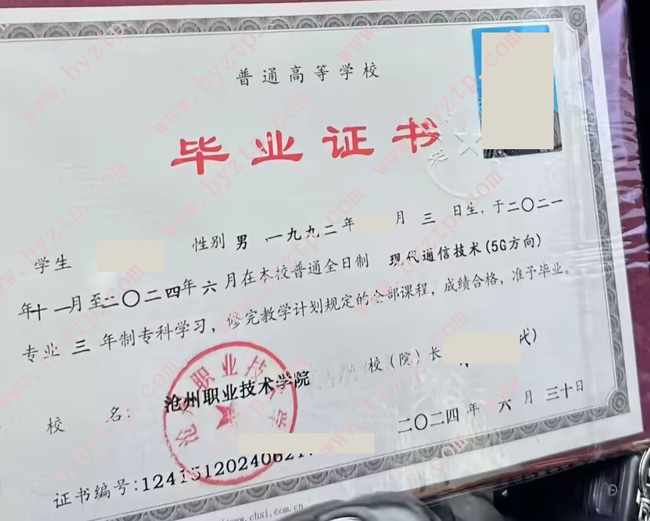 普通高等学校
毕业证书
学生 性别 男,一九九二年 月 三 日生,于二〇二一
年十一月至二〇二四年 六 月在本校普通全日制 现代通信技术(5G方向)
专业 三 年制专科学习,修完教学计划规定的全部课程,成绩合格,准予毕业。
校 名: 沧州职业技术学院 校(院)长 代)
沧州职业技术学院
二〇二四年 六 月 三十日
证书编号:1241512024062
www.byztp.com